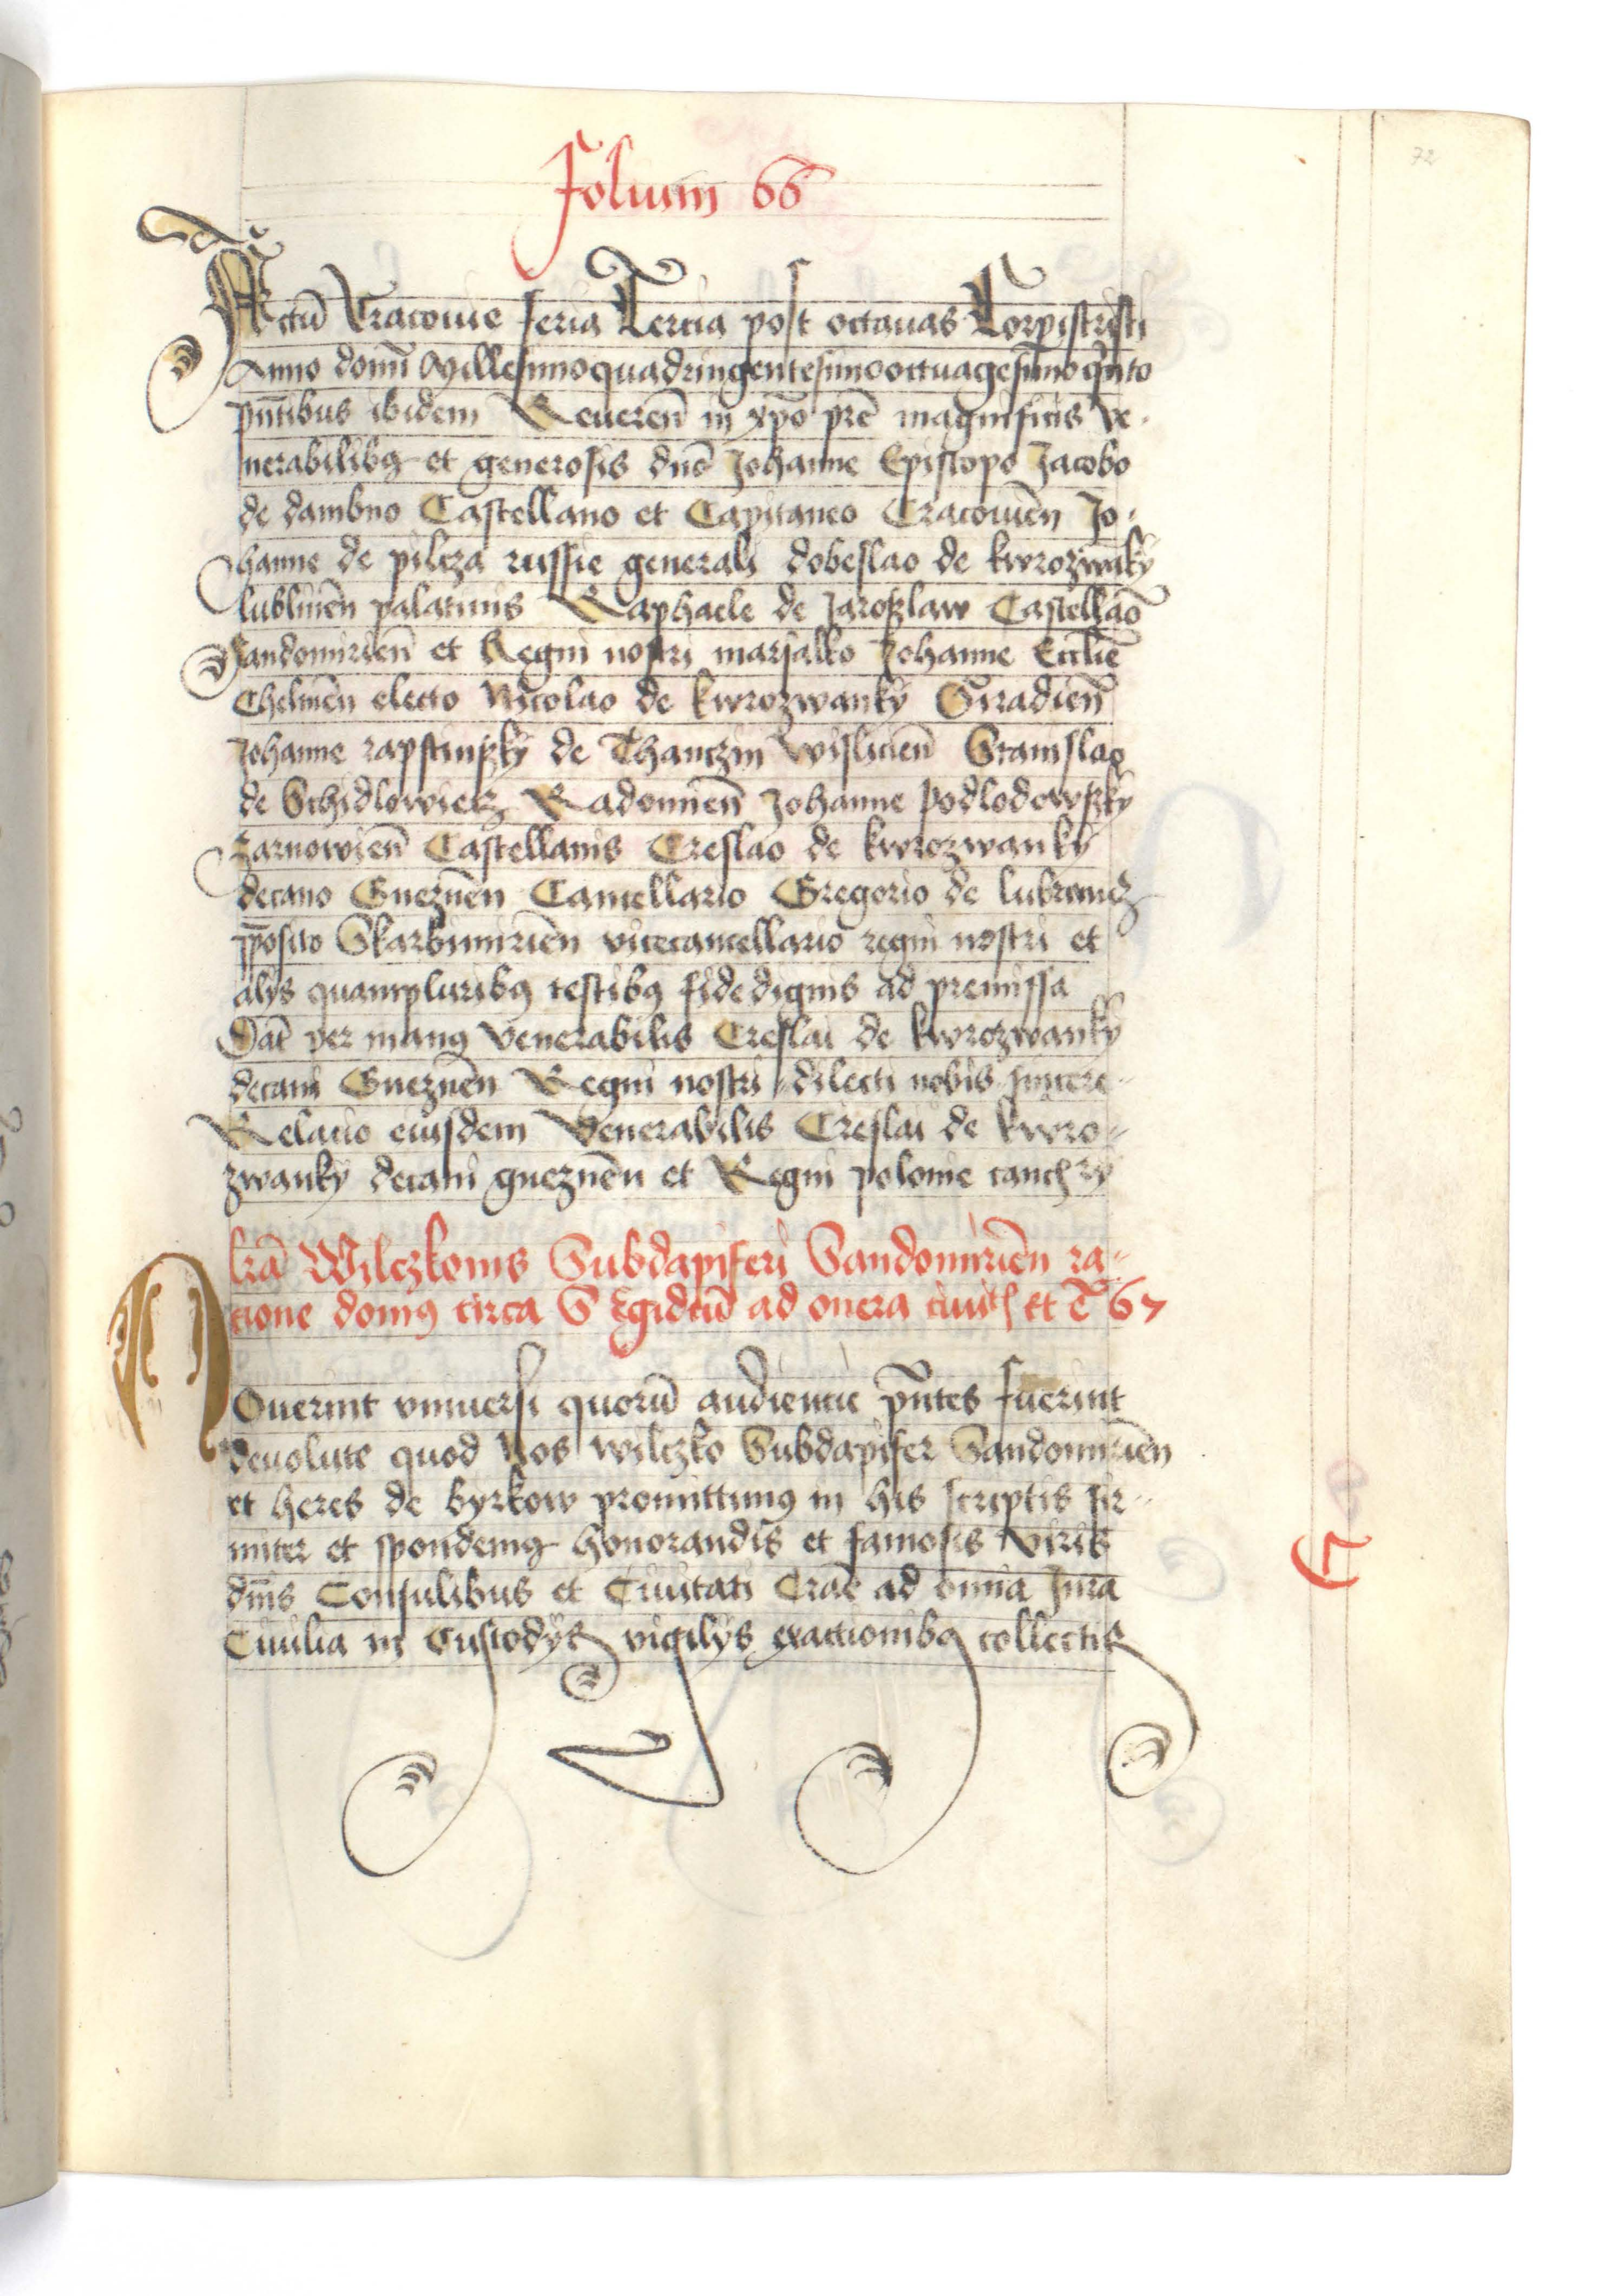 72
Folium 66
Actū Cracouie feria Tercia post octauas Corpiscristi
Anno domī Millesimoquadringentesimooctuagesimoqnto
pñtibus ibidem Reueren̄ in xpo pr̄e magnificis Ve-
nerabilibq et generosis dn̄s Johanne Episcopo Jacobo
de dambno Castellano et Capitaneo Cracouien̄ Jo-
hanne de pilcza russie generali dobeslao de kwrozwaky
lublinen̄ palatinis Raphaele de Jaroszlaw Castellao
Sandomirien̄ et Regni nostri marsalko Johanne Ecclie
Chelmen̄ electo Nicolao de kwrozwanky Siradien̄
Johanne rapstinsky de Thanczin wislicien̄ Stanislao
de Schidlowiecz Radomien̄ Johanne Podlodowsky
zarnowien̄ Castellanis Creslao de kwrozwanky
decano Gneznen̄ Cancellario Gregorio de lubrancz
pposito Skarbimirien̄ vicecancellario regni nostri et
alijs quampluribq testibq fidedignis ad premissa
Dat̄ per manq venerabilis Creslai de kwrozwanky
decani Gneznen̄ Regni nostri dilecti nobis sincere
Relatio eiusdem Venerabilis Creslai de kwro-
zwanky decani gneznen̄ et Regni polonie canchry
lrā Wilczkonis Subdapiferi Sandomirien̄ ra-
cione domq circa S Egidiū ad onera ciuit et c̄ 67
Nouerint vniuersi quorū audientie pñtes fuerint
deuolute quod Nos wilczko Subdapifer Sandomirien̄
et heres de byrkow promittimq in his scriptis fir-
miter et spondemq honorandis et famosis viris
dn̄is Consulibus et Ciuitati Crac̄ ad omnia Jura
Ciuilia in Custodijs vigilijs exactionibq collectis
G